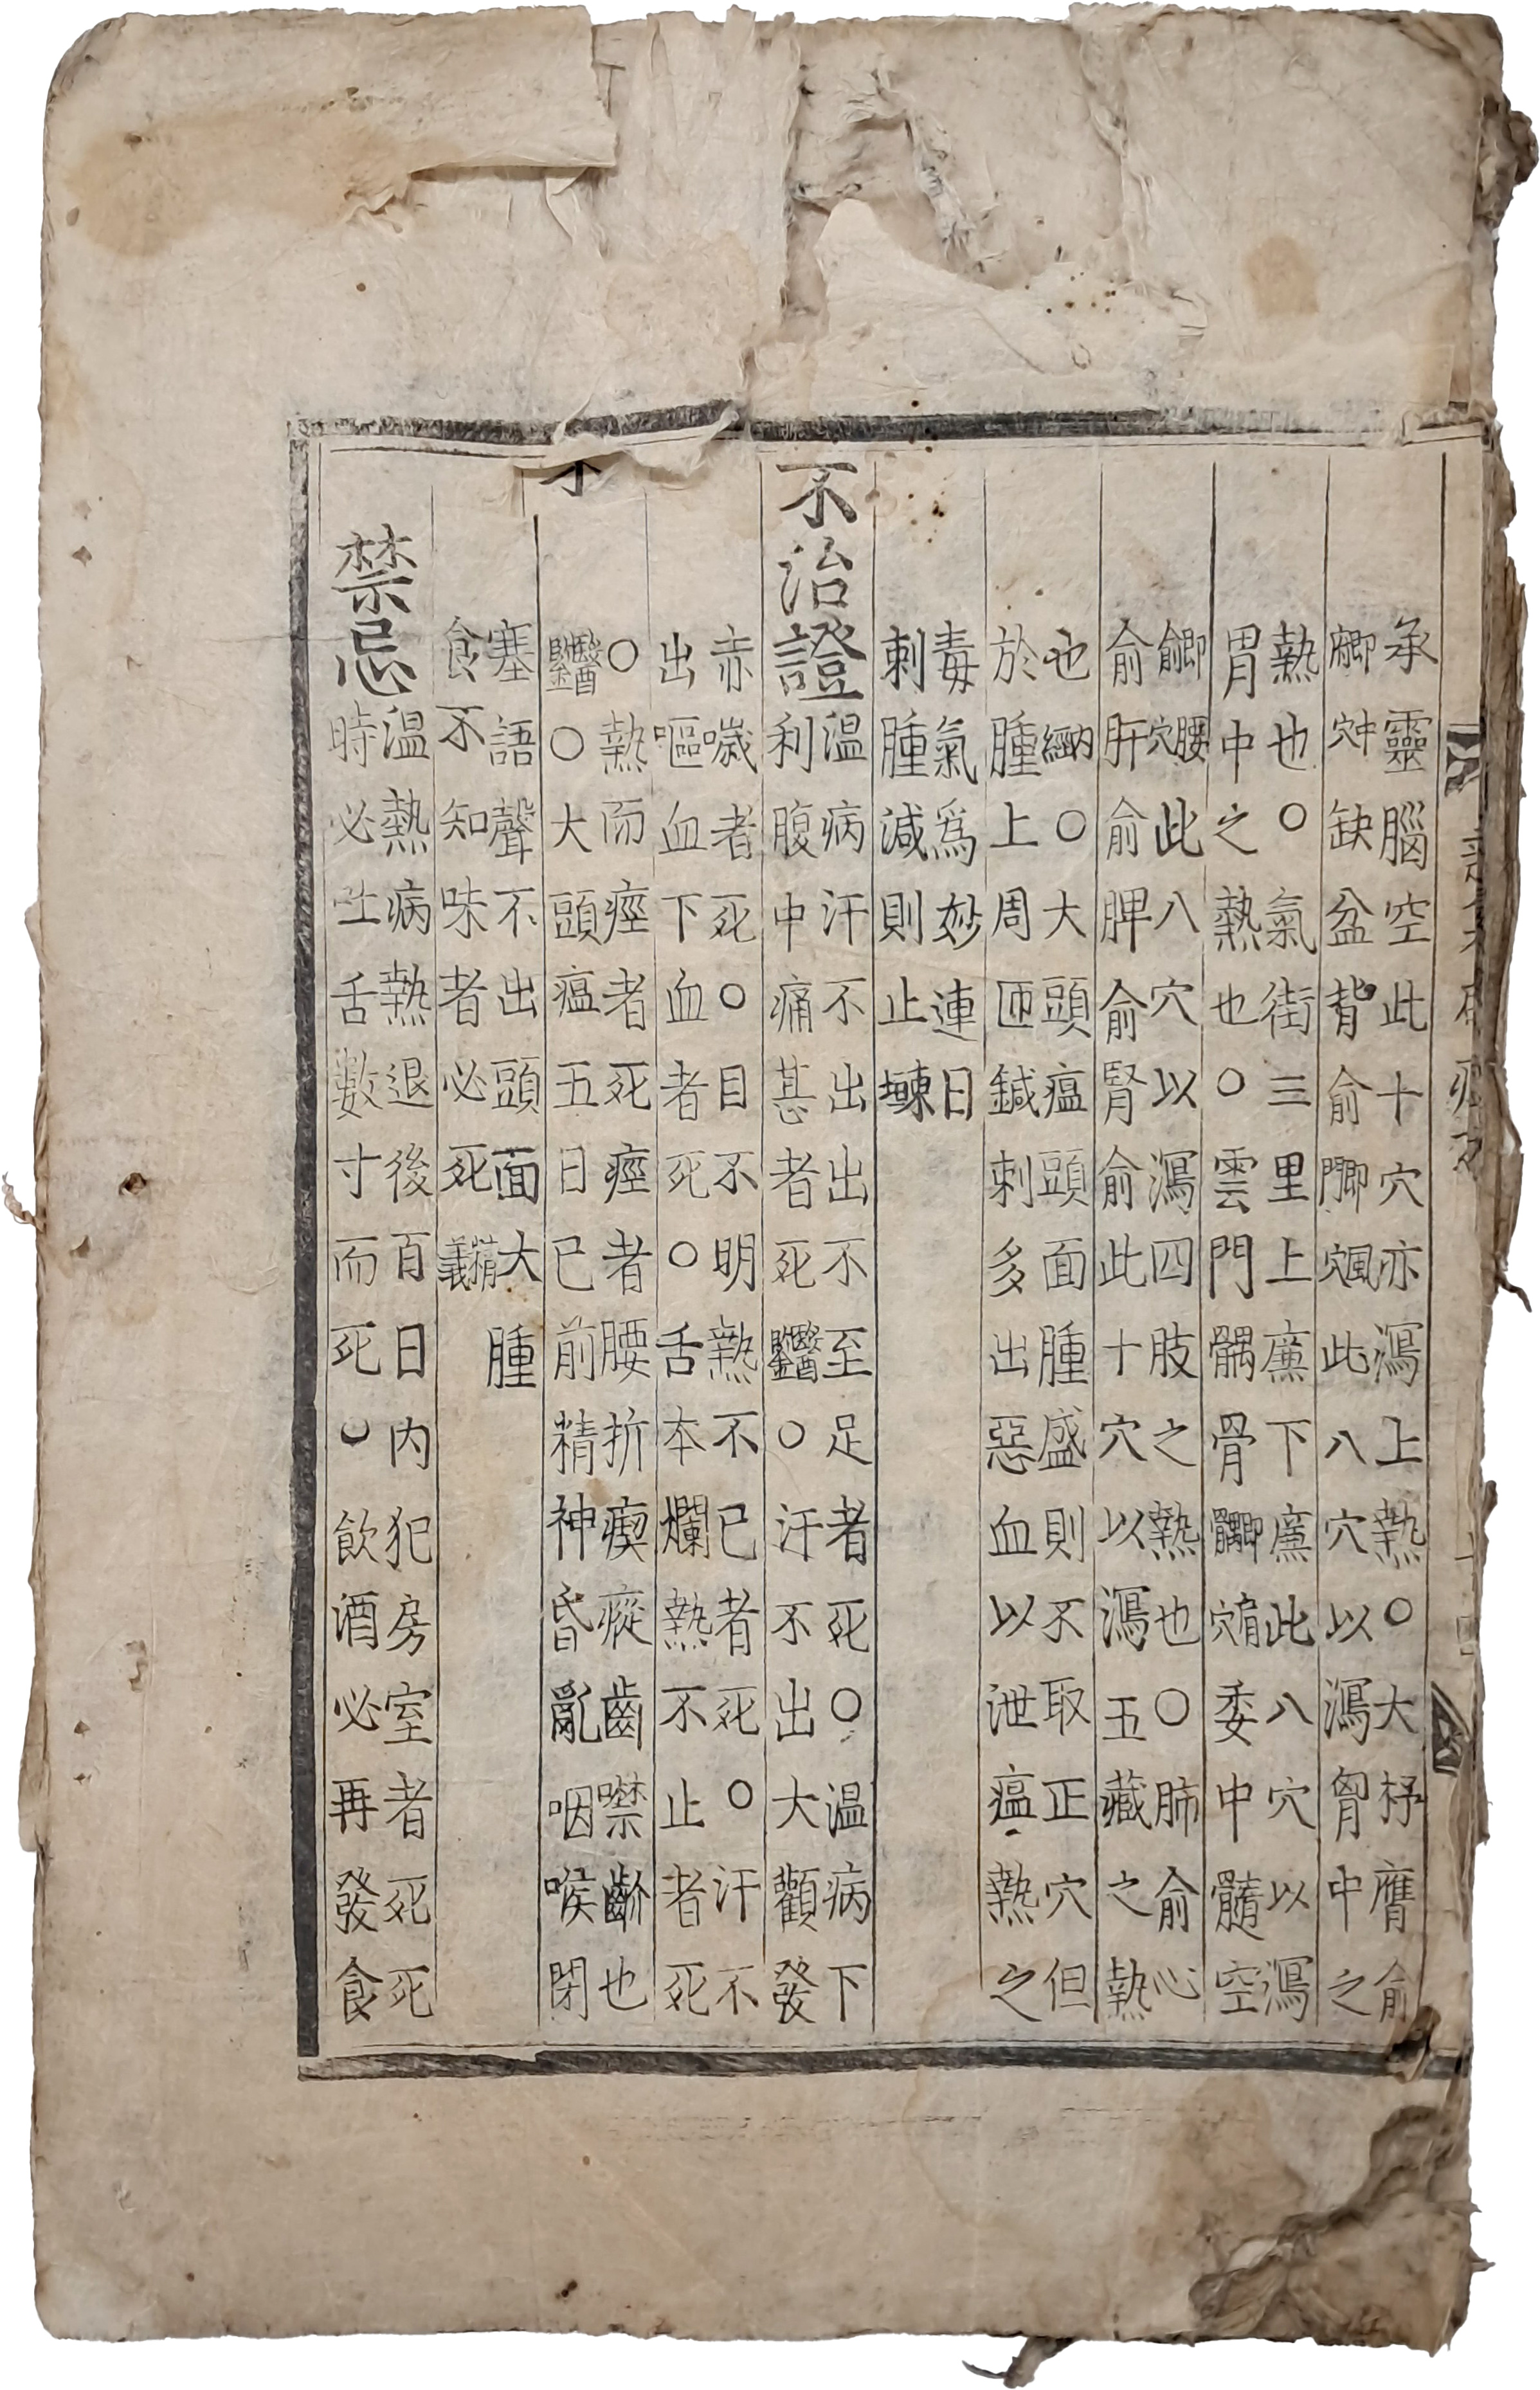 承靈腦空此十穴亦瀉上熱○大杼膺俞
即中府穴缺盆背俞即風門穴此八穴以瀉胷中之
熱也○氣街三里上廉下廉此八穴以瀉
胃中之熱也○雲門髃骨即肩髃穴委中髓空
即腰俞穴此八穴以瀉四肢之熱也○肺俞心
俞肝俞脾俞腎俞此十穴以瀉五藏之熱
也內經○大頭瘟頭面腫盛則不取正穴但
於腫上周匝鍼刺多出惡血以泄瘟熱之
毒氣爲妙連日
刺腫減則止東垣
不治證
温病汗不出出不至足者死○温病下
利腹中痛甚者死醫鑑○汗不出大顴發
赤噦者死○目不明熱不已者死○汗不
出嘔血下血者死○舌本爛熱不止者死
○熱而痙者死痙者腰折瘈瘲齒噤齘也
醫鑑○大頭瘟五日已前精神昏亂咽喉閉
塞語聲不出頭面大腫
食不知味者必死精義
禁忌
温熱病熱退後百日內犯房室者死死
時必吐舌數寸而死○飲酒必再發食